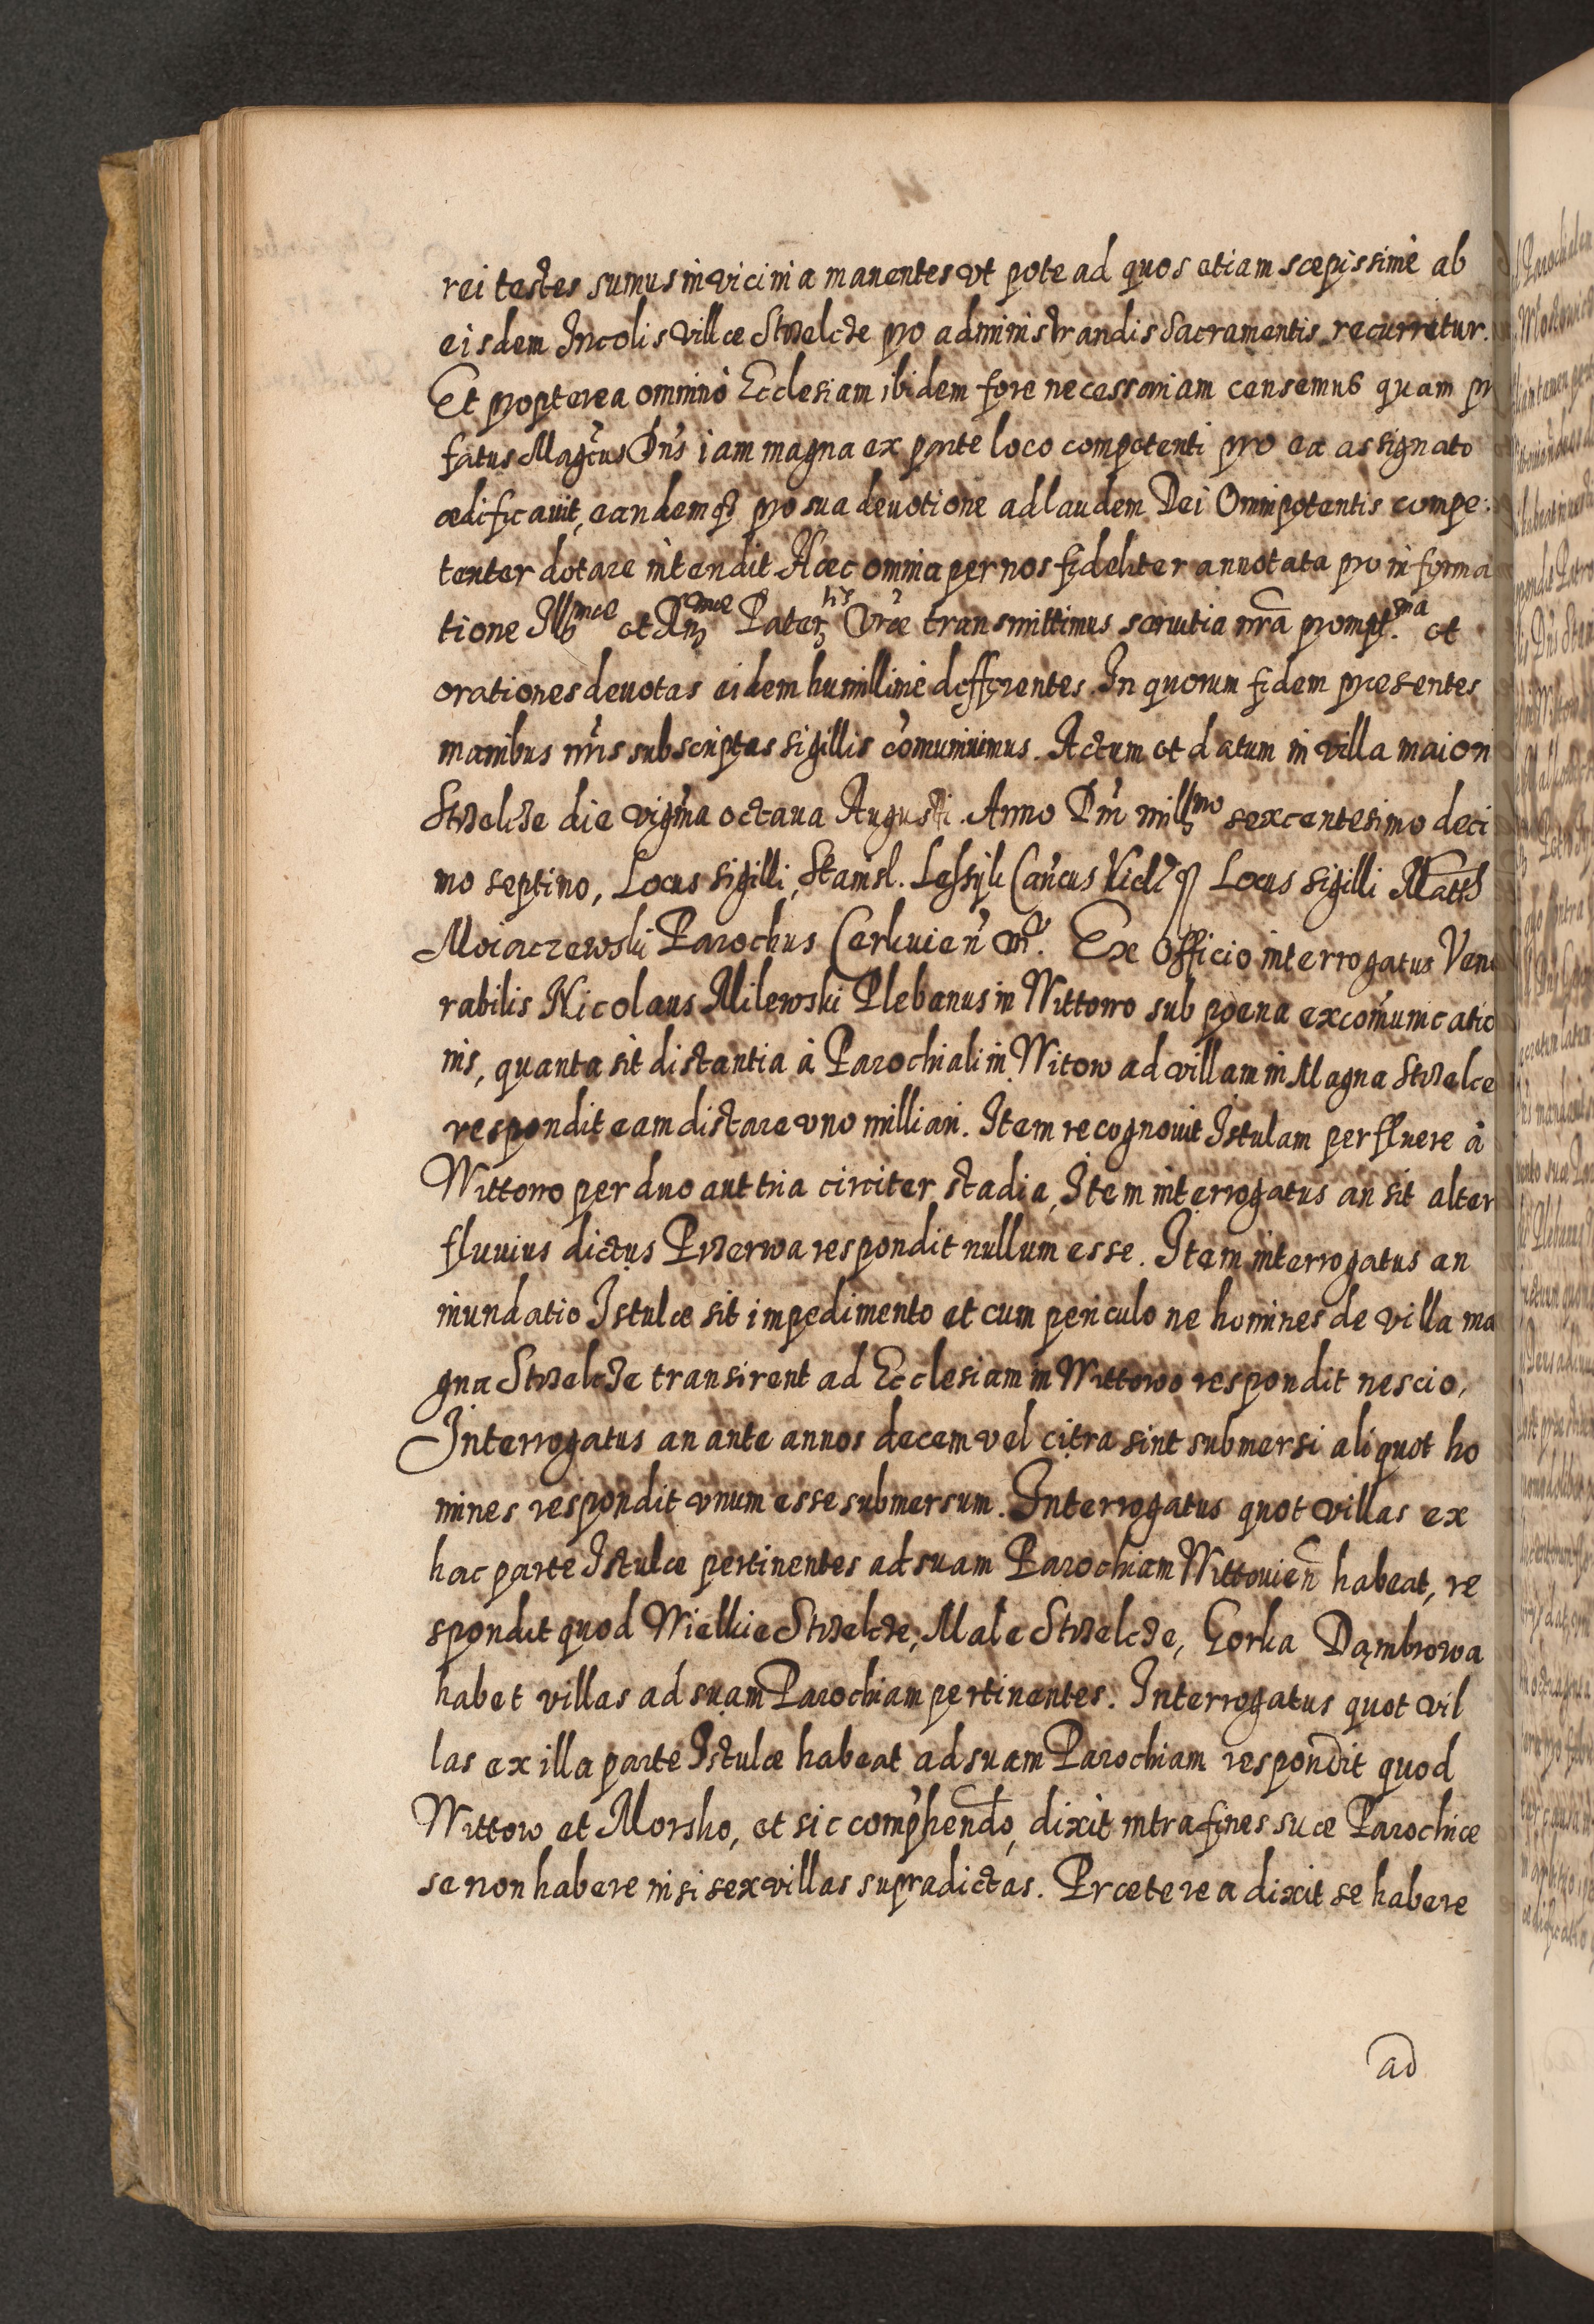 rei testes sumus in vicinia manentes vt pote ad quos etiam sæpissimè ab
eisdem Incolis Villæ Strzelcze pro administrandis Sacramentis recurretur.
Et propterea omninò Ecclesiam ibidem fore necessariam censemus quam pr
fatus Magcus Dns iam magna ex parte loco competenti pro ea assignato
ædificauit, eandemq3 pro sua deuotione ad laudem Dei Omnipotentis compe:
tenter dotare intendit Hæc omnia per nos fideliter annotata pro informa
tione Illmæ et Rmæ Paterts Vræ transmittimus seruitia nra prompt.ma et
orationes deuotas eidem humillimè defferentes. In quorum fidem præsentes
manibus nris subscriptas sigillis comuniuimus. Actum et datum in villa maiori
Strzelcze die vigma octaua Augusti Anno Dni millmo sexcentesimo deci
mo septimo, Locus sigilli, Stanisl. Lessyk Cancus Locus sigilli Matth
Moiaczewski Parochus Cerkuien mp. Ex Officio interrogatus Vene
rabilis Nicolaus Milewski Plebanus in Wittowo sub poena excomunicatio
nis, quanta sit distantia à Parochiali in Witow ad villam in Magna Strzelce
respondit eam distare vno milliari. Item recognouit Istulam perfluere à
Wittowo per duo aut tria circiter stadia, Item interrogatus an sit alter
fluuius dictus Przerwa respondit nullum esse. Item interrogatus an
inundatio Istulæ sit impedimento et cum periculo ne homines de villa ma
gna Strzelcze transirent ad Ecclesiam in Wittowo respondit nescio,
Interrogatus an ante annos decem vel citra sint submersi aliquot ho
mines respondit vnum esse submersum. Interrogatus quot villas ex
hac parte Istulæ pertinentes ad suam Parochiam Wittouien habeat, re
spondit quod Wielkie Strzelcze, Male Strzelcze, Gorka Dąmbrowa
habet villas ad suam Parochiam pertinentes. Interrogatus quot vil
las ex illa parte Istulæ habeat ad suam Parochiam respondit quod
Wittow et Morsko, et sic comphendo, dixit intra fines suæ Parochiæ
se non habere nisi sex villas supradictas. Præterea dixit se habere
ad